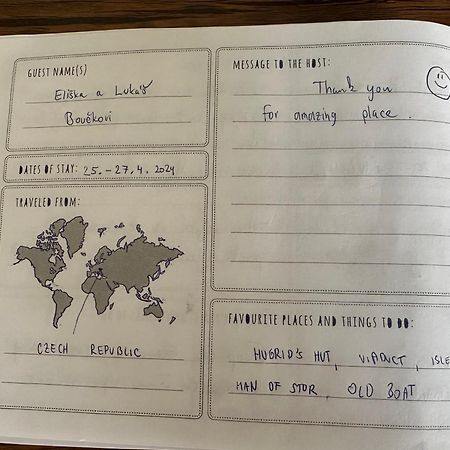 GUEST NAME(S)
Eliška a Lukáš
Boučkovi
DATES OF STAY: 25. - 27. 4. 2024
TRAVELED FROM:
CZECH REPUBLIC
MESSAGE TO THE HOST:
Thank you
for amazing place.
FAVOURITE PLACES AND THINGS TO DO:
HUGRID'S HUT, VIADUCT, ISLE
MAN OF STOR, OLD BOAT